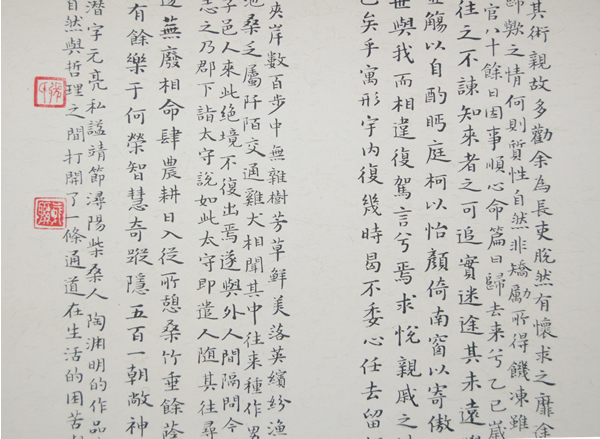 其術親故多勸余為長吏脫然有懷求之靡途
歸歟之情何則質性自然非矯勵所得饑凍雖
官八十餘日因事順心命篇曰歸去来兮乙巳歲
往之不諫知来者之可追實迷途其未遠
觴以自酌眄庭柯以怡顏倚南窗以寄傲
世與我而相違復駕言兮焉求悅親戚之
已矣乎寓形宇內復幾時曷不委心任去留
夾岸數百步中無雜樹芳草鮮美落英繽紛漁
池桑之屬阡陌交通雞犬相聞其中往来種作男
子邑人来此绝境不復出焉遂與外人間隔問今
志之乃郡下詣太守說如此太守即遣人随其往尋
蕪廢相命肆農耕日入從所憩桑竹垂餘蔭
有餘樂于何榮智慧奇蹤隱五百一朝敞神
潛字元亮私謚靖節潯陽柴桑人陶渊明的作品
自然與哲理之間打開了一條通道在生活的困苦